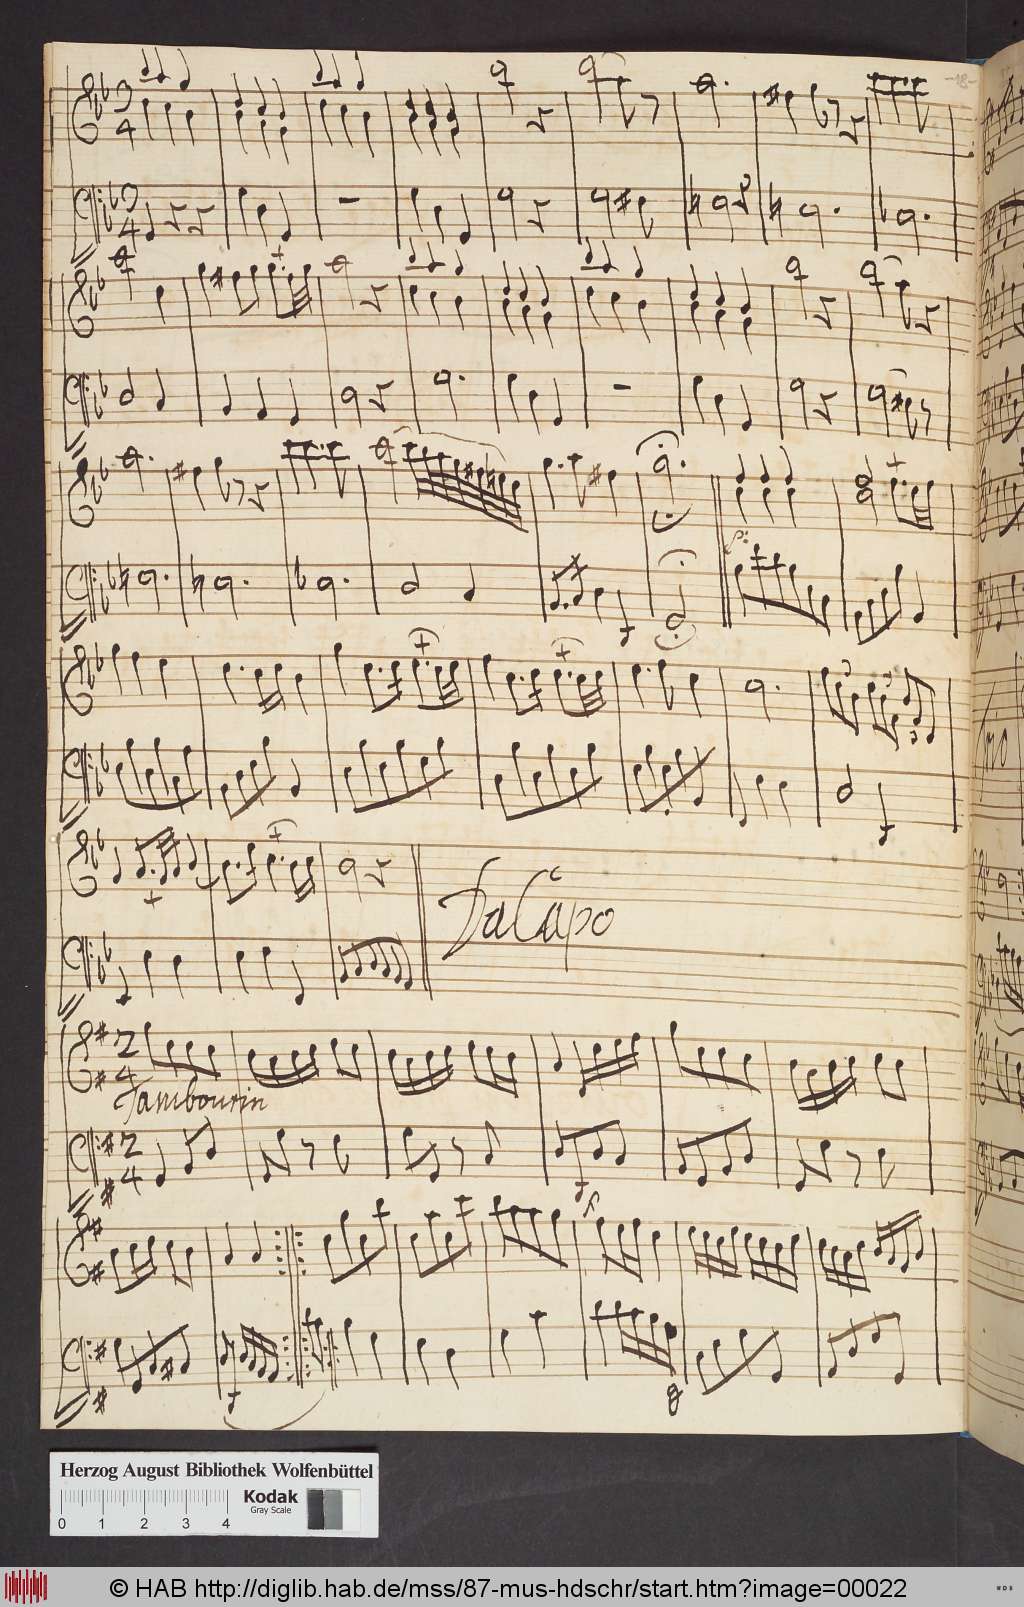 18
3
4
3
4
p:
3
3
3
Da Capo
2
4
Tambourin
2
4
Herzog August Bibliothek Wolfenbüttel
Kodak
Gray Scale
0 1 2 3 4
© HAB http://diglib.hab.de/mss/87-mus-hdschr/start.htm?image=00022